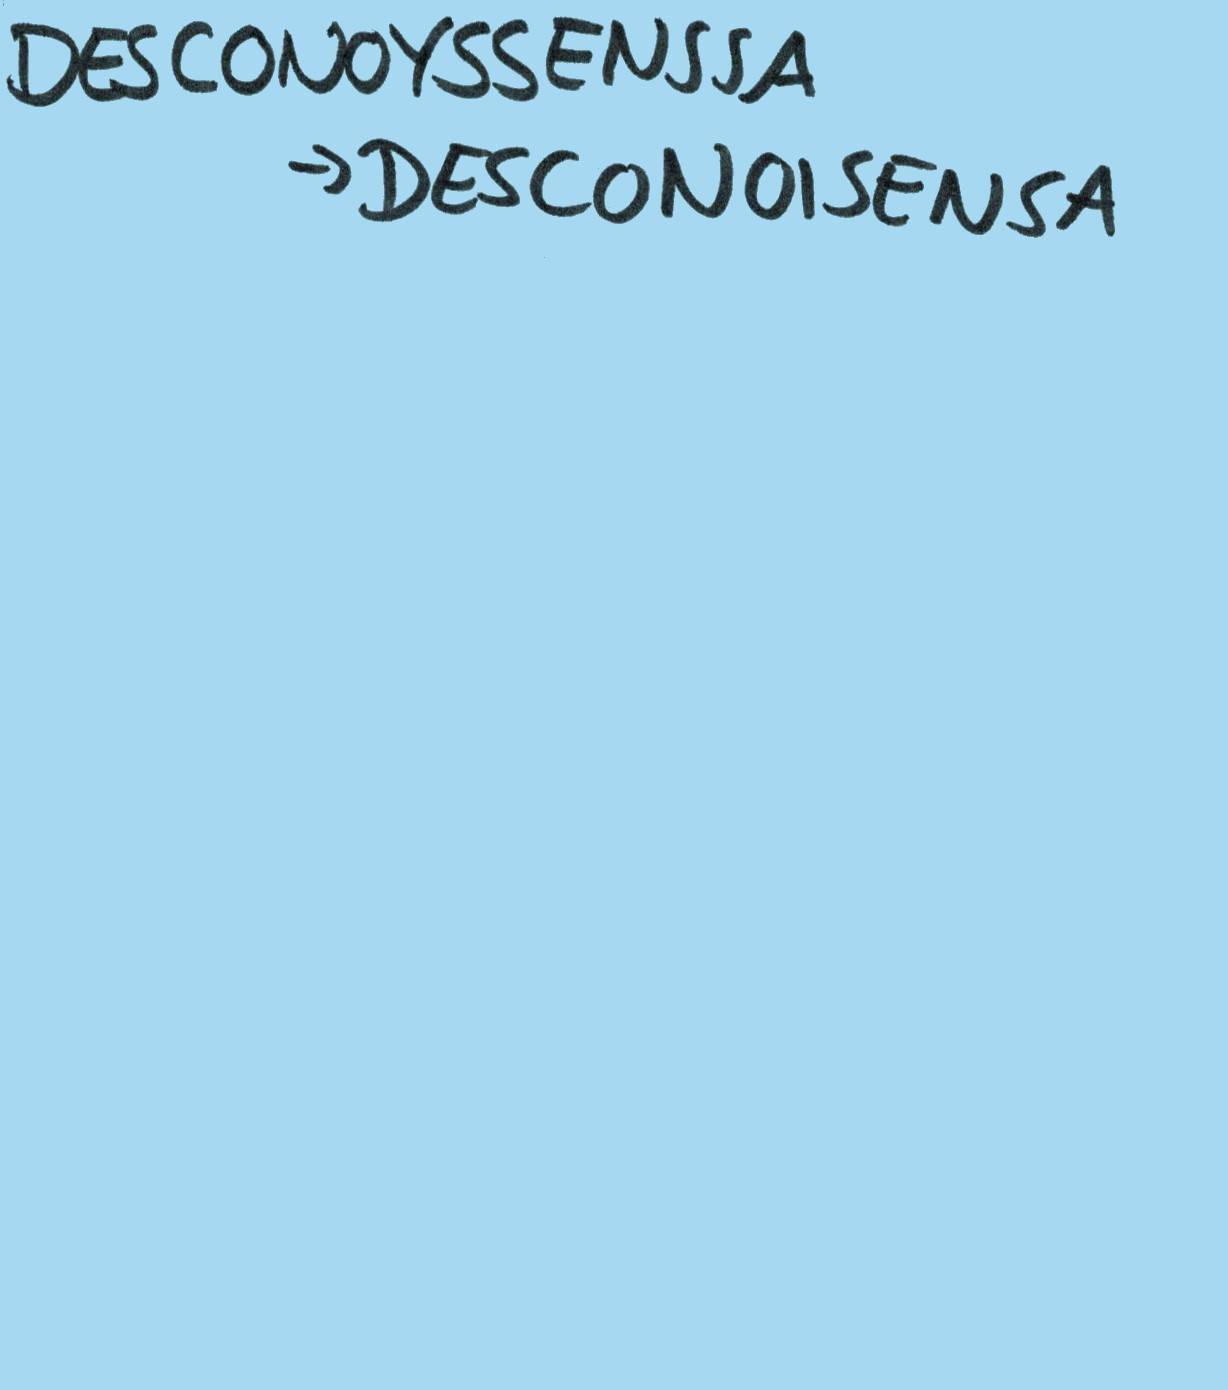 DESCONOYSSENSSA
→DESCONOISENSA